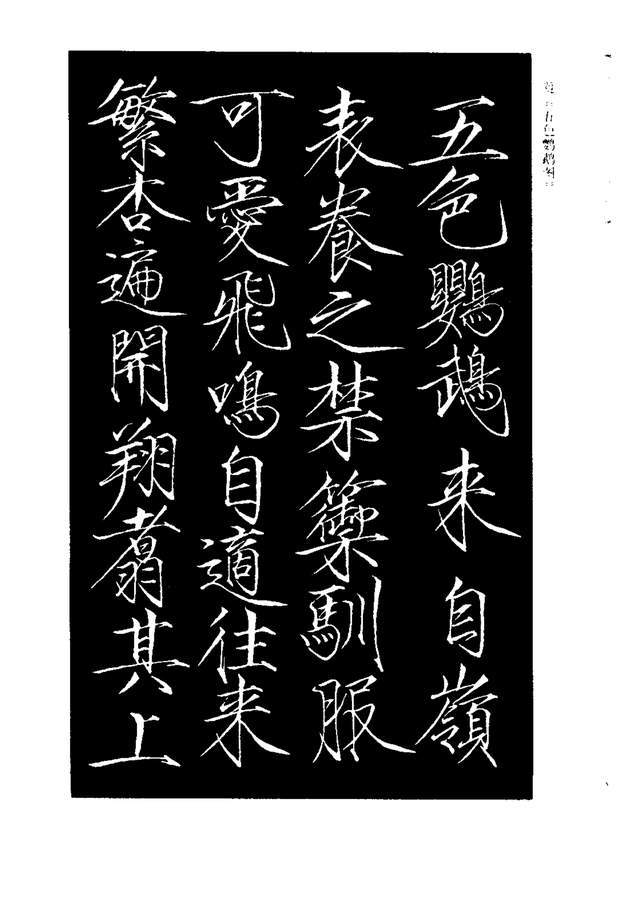 五色鸚鵡来自嶺
表養之禁籞馴服
可愛飛鳴自適往来
繁杏遍開翔翥其上
五色鹦鹉图